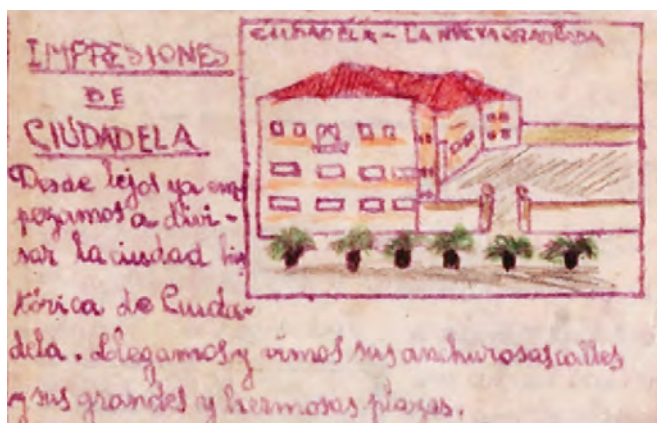 IMPRESIONES
DE
CIUDADELA
CIUDADELA - LA NUEVA GRADUADA
Desde lejos ya em-
pezamos a divi-
sar la ciudad his
tórica de Ciuda-
dela. Llegamos y vimos sus anchurosas calles
y sus grandes y hermosas plazas.